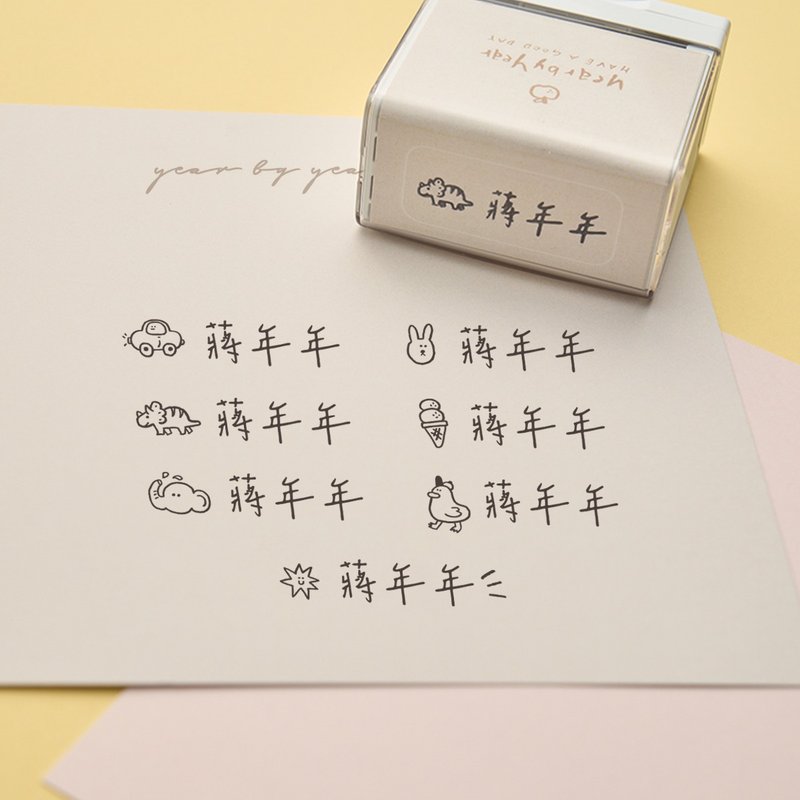 year by yea
Year by Year
HAVE A GOOD DAY
蔣年年
蔣年年 蔣年年
蔣年年 蔣年年
蔣年年 蔣年年
蔣年年